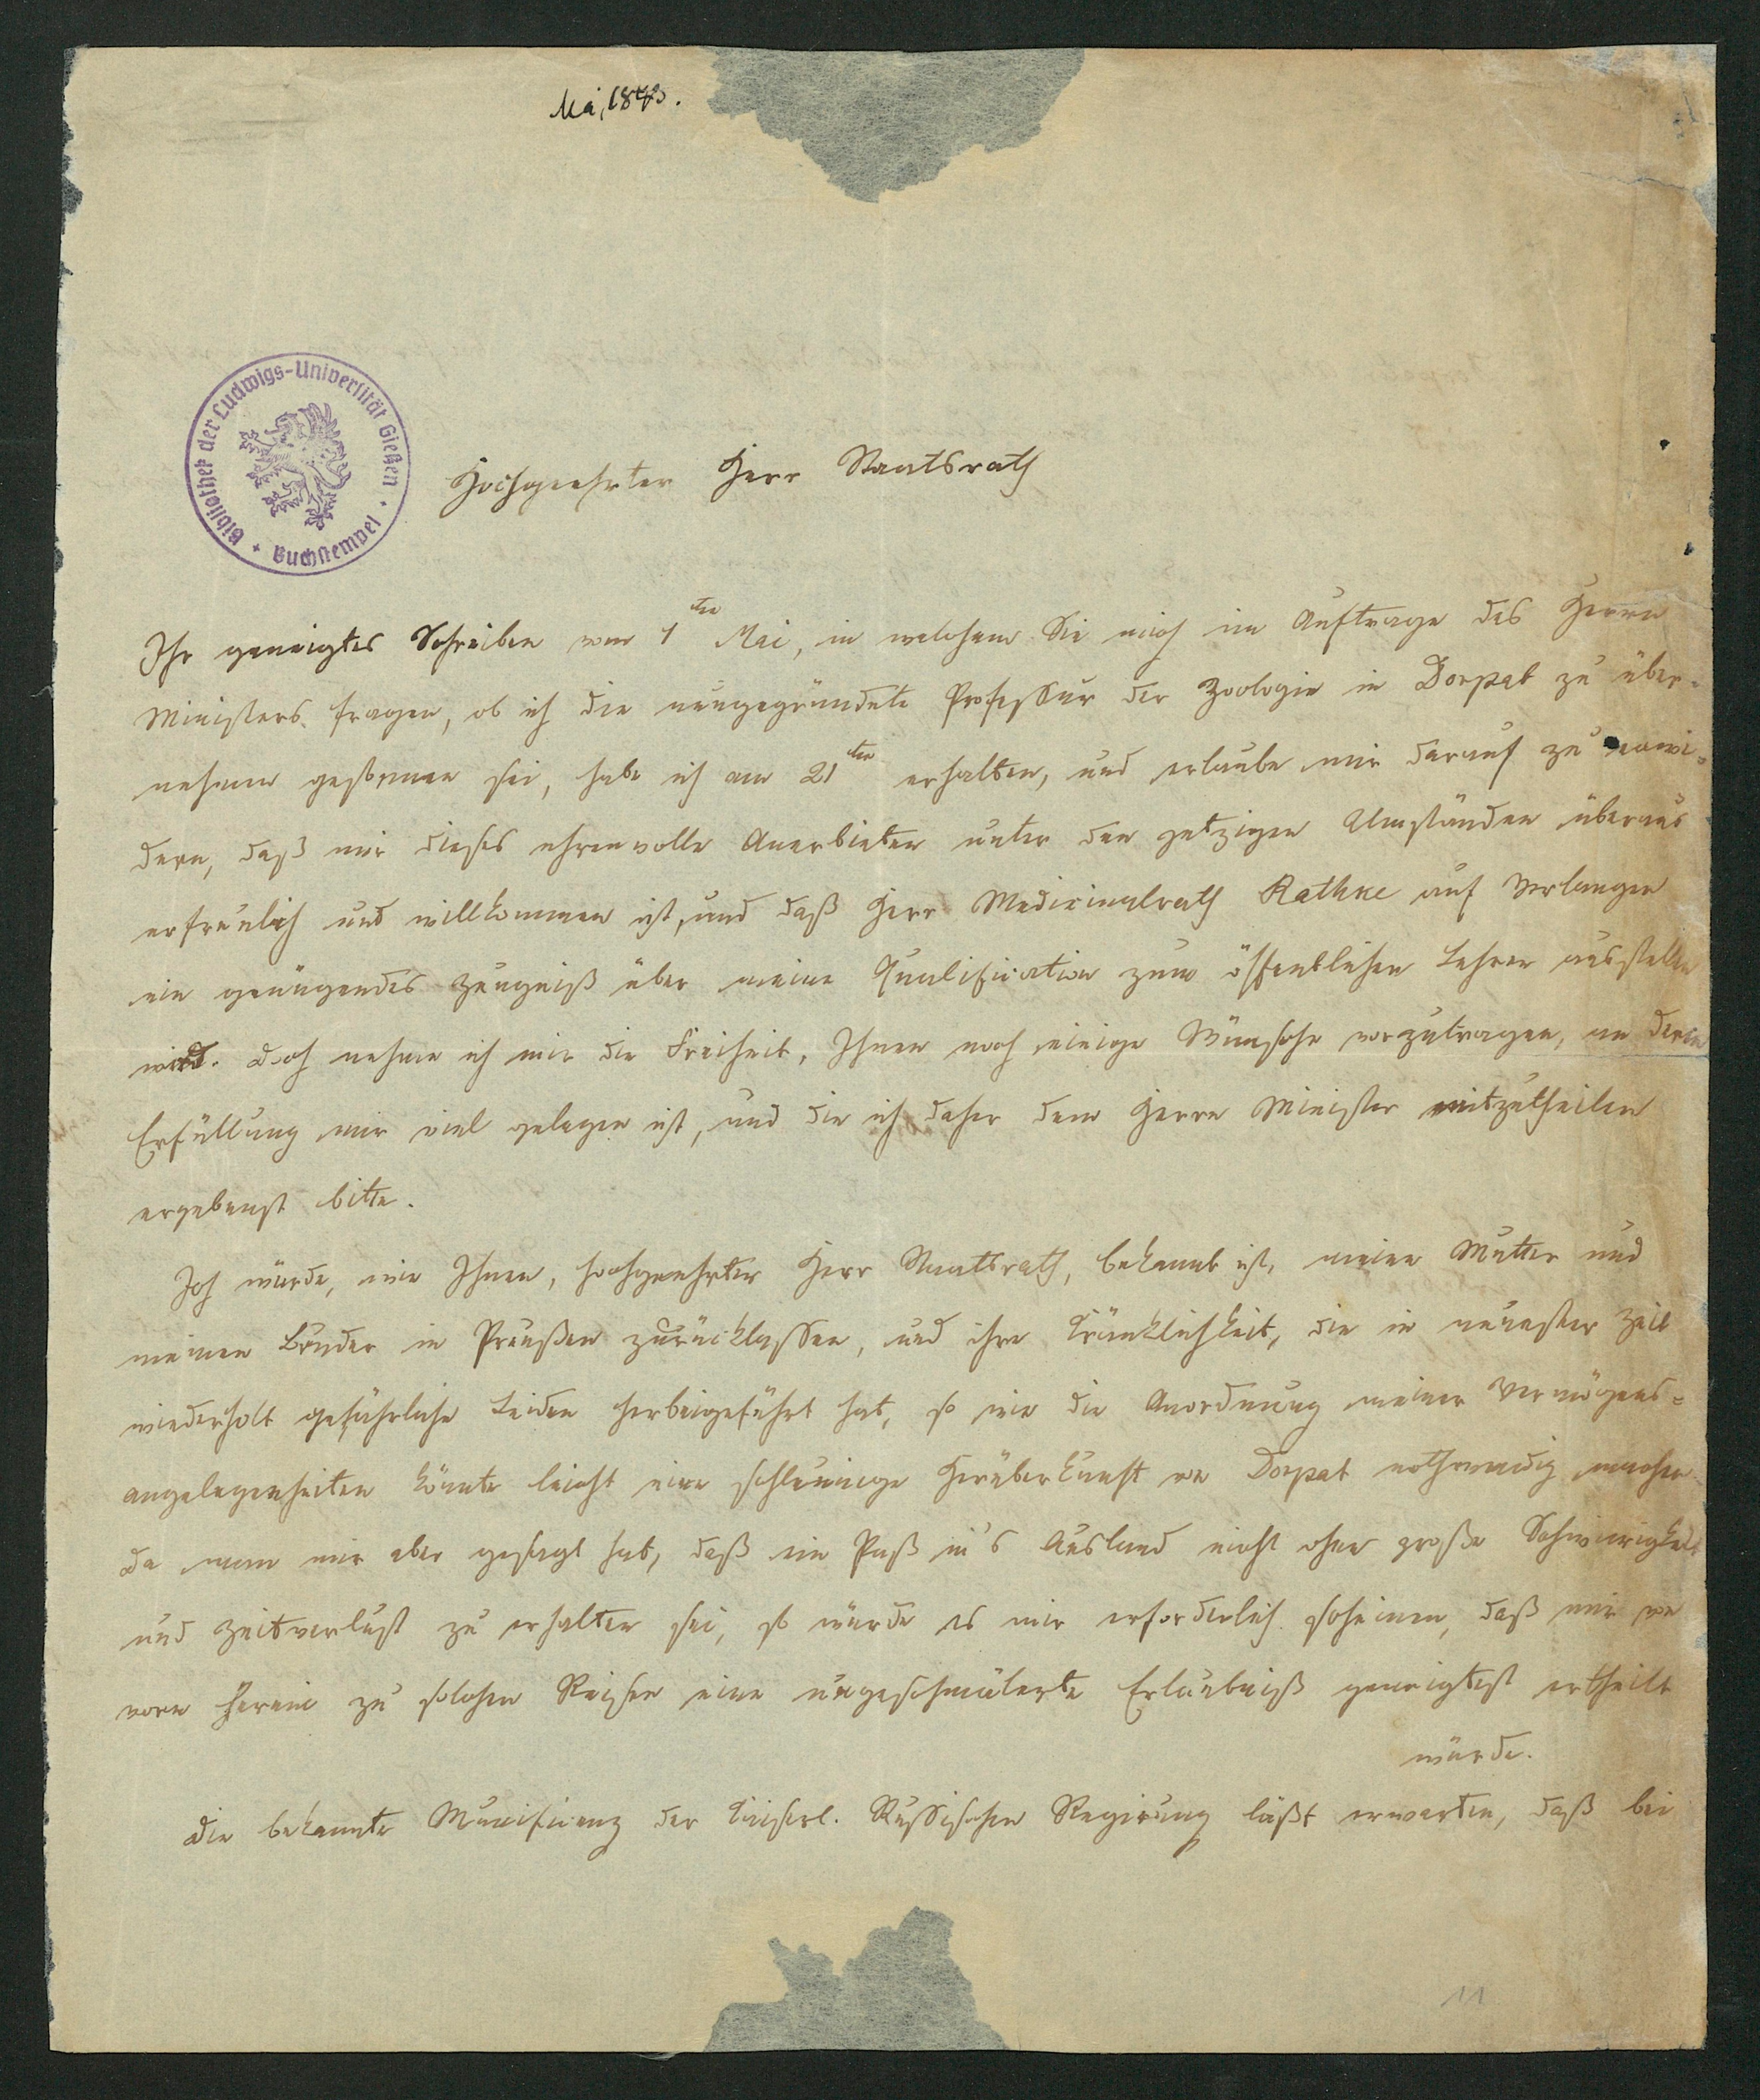 Mai, 1843.
Bibliothek der Ludwigs-Universität Gießen · Buchstempel
Hochgeehrter Herr Staatsrath
Ihr geneigtes Schreiben vom 1ten Mai, in welchem Sie mich im Auftrage des Herrn
Ministers fragen, ob ich die neugegründete Professur der Zoologie in Dorpat zu über-
nehmen gesonnen sei, habe ich am 21ten erhalten, und erlaube mir darauf zu erwi-
dern, daß mir dieses ehrenvolle Anerbieten unter den jetzigen Umständen überaus
erfreulich und willkommen ist, und daß Herr Medicinalrath Rathke auf Verlangen
ein genügendes Zeugniß über meine Qualification zum öffentlichen Lehrer ausstellen
wird. Doch nehme ich mir die Freiheit, Ihnen noch einige Wünsche vorzutragen, an deren
Erfüllung mir viel gelegen ist, und die ich daher dem Herrn Minister mitzutheilen
ergebenst bitte.
Ich würde, wie Ihnen, hochgeehrter Herr Staatsrath, bekannt ist, meine Mutter und
meinen Bruder in Preußen zurücklassen, und ihre Kränklichkeit, die in neuester Zeit
wiederholt gefährliche Leiden herbeigeführt hat, so wie die Anordnung meiner Vermögens-
angelegenheiten könnte leicht eine schleunige Herüberkunft von Dorpat nothwendig machen.
Da man mir aber gesagt hat, daß ein Paß in's Ausland nicht ohne große Schwierigkeit
und Zeitverlust zu erhalten sei, so würde es mir erforderlich scheinen, daß mir von
vorn herein zu solchen Reisen eine ungeschmälerte Erlaubniß geneigtest ertheilt
würde.
Die bekannte Munificenz der Kaiserl. Russischen Regirung läßt erwarten, daß bei
11